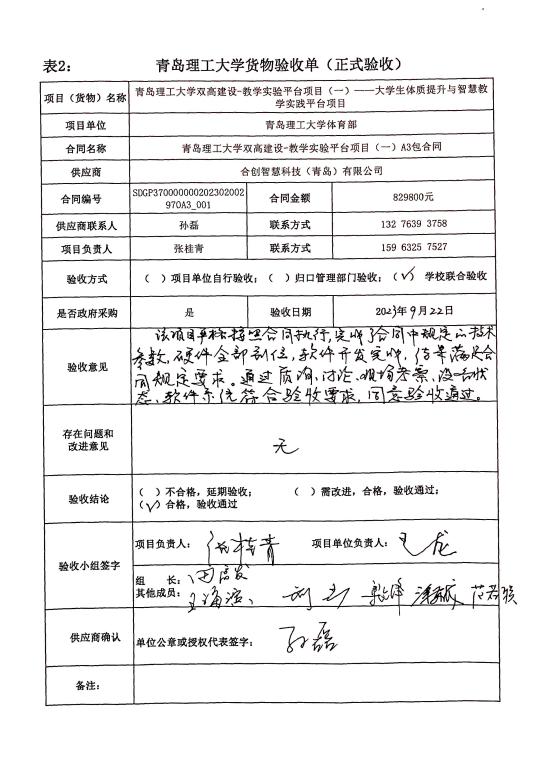 表2： 青岛理工大学货物验收单（正式验收）
项目（货物）名称 青岛理工大学双高建设-教学实验平台项目（一）——大学生体质提升与智慧教
学实践平台项目
项目单位 青岛理工大学体育部
合同名称 青岛理工大学双高建设-教学实验平台项目（一）A3包合同
供应商 合创智慧科技（青岛）有限公司
合同编号 SDGP370000000202302002
970A3_001 合同金额 829800元
供应商联系人 孙磊 联系方式 132 7639 3758
项目负责人 张桂青 联系方式 159 6325 7527
验收方式 （ ）项目单位自行验收；（ ）归口管理部门验收；（√） 学校联合验收
是否政府采购 是 验收日期 2023年9月22日
验收意见 该项目严格按照合同执行，完成了合同中规定的技术
参数，硬件全部到位，软件开发完毕，结果满足合
同规定要求。通过质询、讨论、现场考察，设备状
态、软件系统符合验收要求，同意验收通过。
存在问题和
改进意见 无
验收结论 （ ）不合格，延期验收； （ ）需改进，合格，验收通过；
（√）合格，验收通过
验收小组签字 项目负责人： 张桂青 项目单位负责人： 王龙
组 长：
其他成员：
供应商确认 单位公章或授权代表签字： 孙磊
备注：